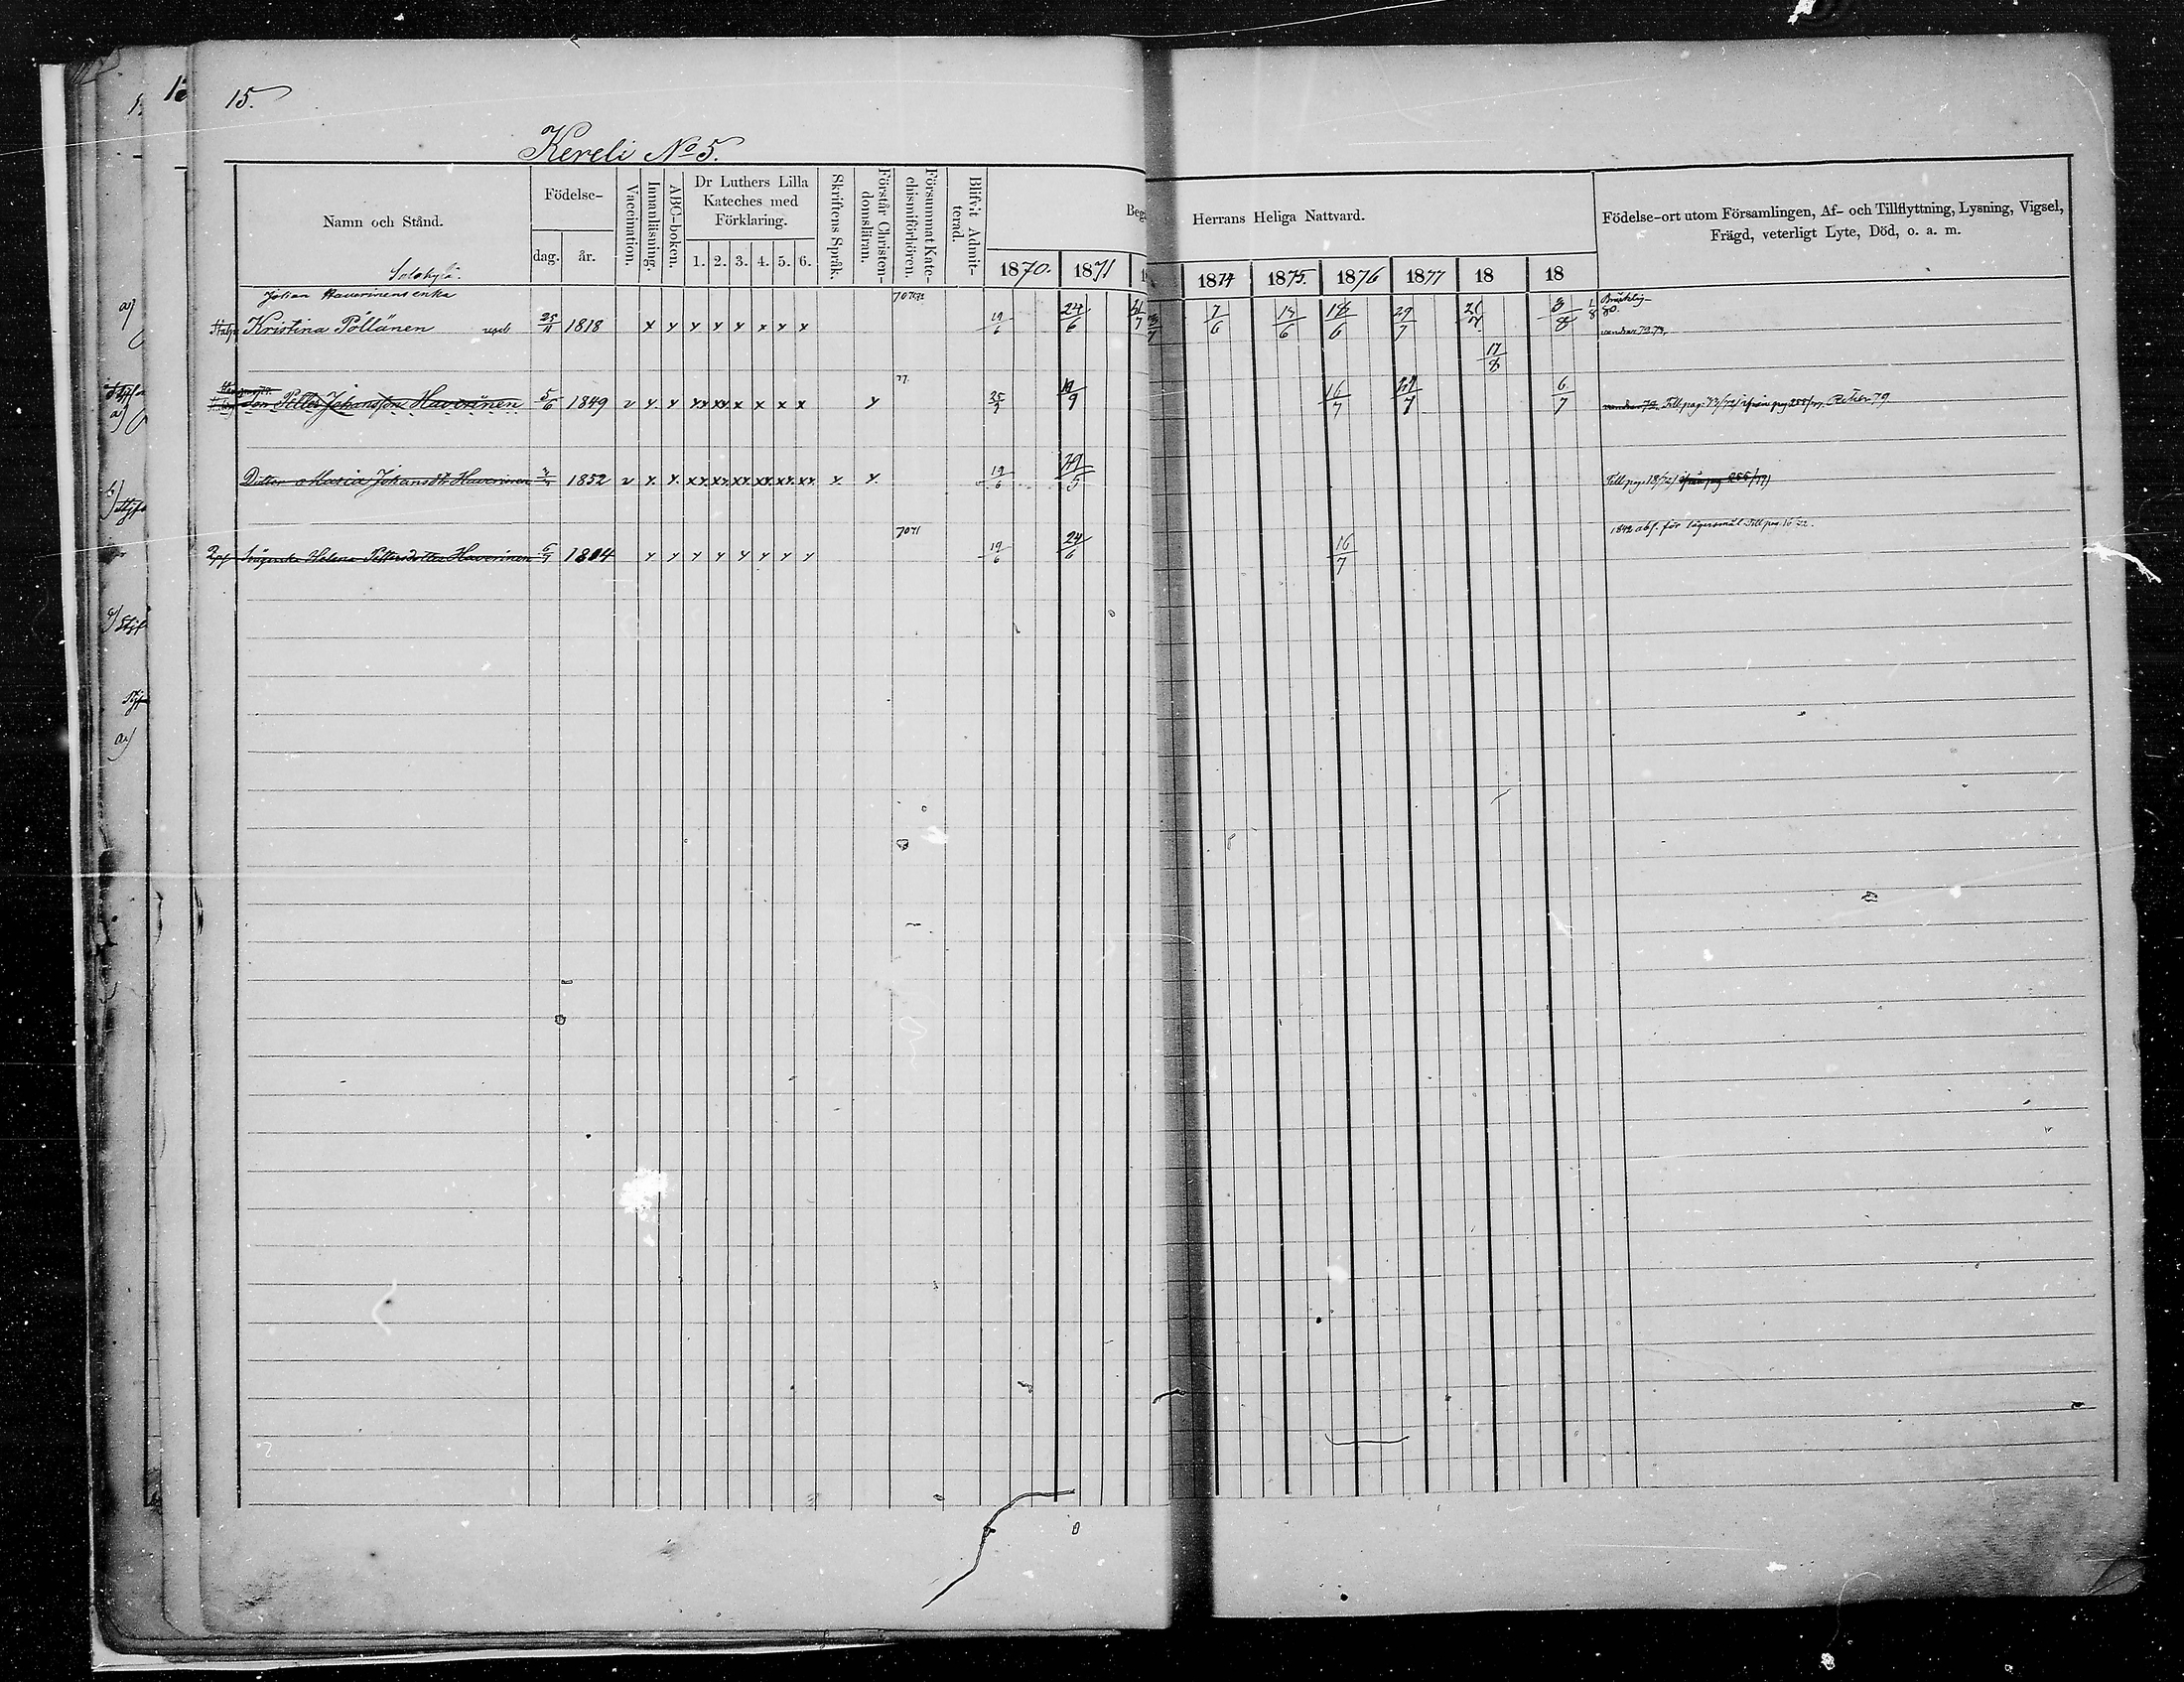 15.
Kereli No 5.
Namn och Stånd.
Födelse-
dag.
år.
Vaccination.
Innanläsning.
ABC-boken.
Dr Luthers Lilla Kateches med Förklaring.
1. 2. 3. 4. 5. 6.
Skriftens Språk.
Förstår Christendomsläran.
Försummat Katechismiförhören.
Blifvit Admitterad.
Beg
Herrans Heliga Nattvard.
1870. 1871 1874 1875. 1876 1877 18 18
Födelse-ort utom Församlingen, Af- och Tillflyttning, Lysning, Vigsel, Frägd, veterligt Lyte, Död, o. a. m.
Johan Haverinens enka
Kristina Pöllänen 25/11 1818 x x x x x x x x x 19/6 24/6 7/6 13/6 18/6 29/7 8/8
17/8
Son Petter Johansson Haverinen 5/6 1849 v x x xx xx x x x x x 25/9 19/9 16/7 29/7 6/7
Dotter Maria Johansdr Haverinen 1852 v x x xx xx xx xx xx xx x x 19/6 29/5 Till pag. 18/72
Helena Pettersdotter Haverinen 6/7 1804 x x x x x x x x 7071 19/6 24/6 16/7 1842 abs. för lägersmål Till pag. 16/72.